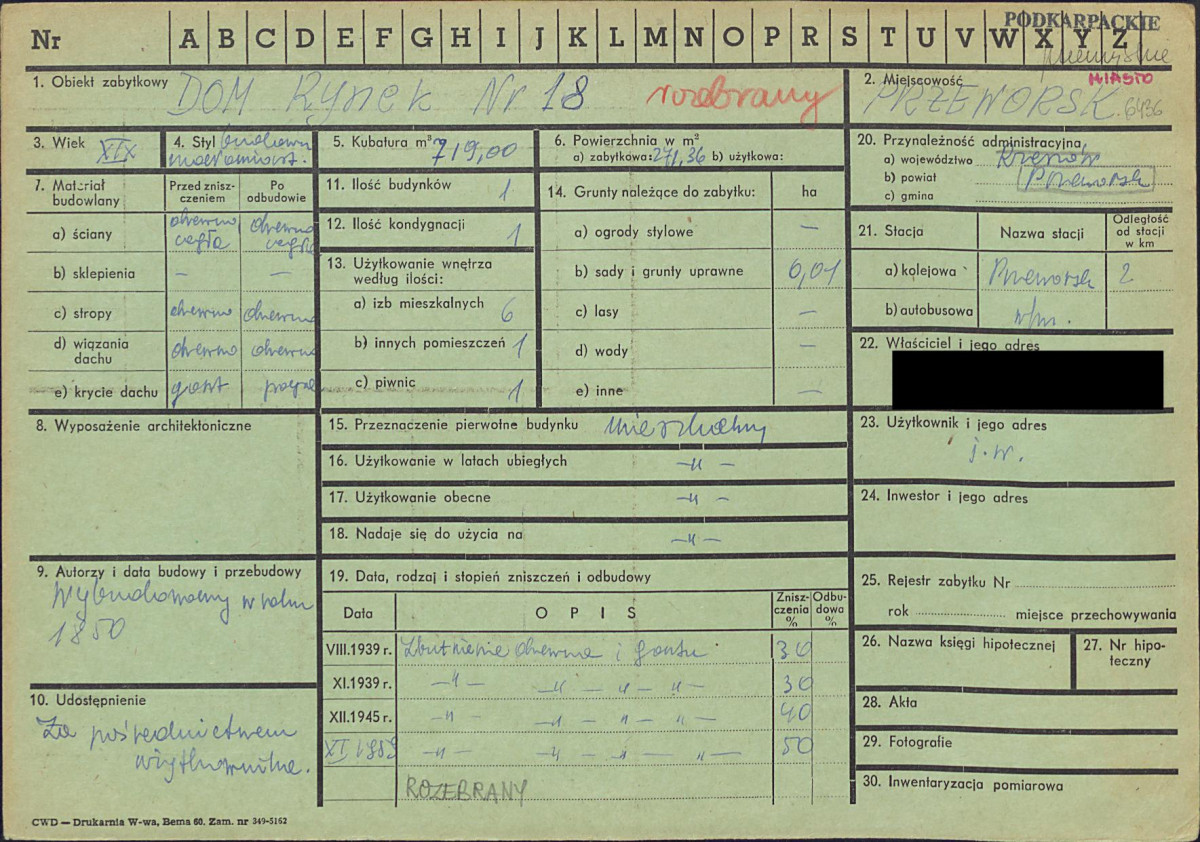 PODKARPACKIE
Nr A B C D E F G H I J K L M N O P R S T U V W X Y Z
przemyskie
MIASTO
1. Obiekt zabytkowy DOM Rynek Nr 18 rozebrany
2. Miejscowość PRZEWORSK 6436
3. Wiek XIX
4. Styl budown. małomiast.
5. Kubatura m³ 719,00
6. Powierzchnia w m²
a) zabytkowa: 271,36 b) użytkowa:
7. Materiał budowlany
Przed zniszczeniem
Po odbudowie
a) ściany drewno cegła drewno cegła
b) sklepienia — —
c) stropy drewno drewno
d) wiązania dachu drewno drewno
e) krycie dachu gont papa
8. Wyposażenie architektoniczne
9. Autorzy i data budowy i przebudowy
Wybudowany w roku
1850
10. Udostępnienie
Za pośrednictwem
użytkownika.
11. Ilość budynków 1
12. Ilość kondygnacji 1
13. Użytkowanie wnętrza według ilości:
a) izb mieszkalnych 6
b) innych pomieszczeń 1
c) piwnic 1
14. Grunty należące do zabytku: ha
a) ogrody stylowe —
b) sady i grunty uprawne 0,01
c) lasy —
d) wody —
e) inne —
15. Przeznaczenie pierwotne budynku mieszkalny
16. Użytkowanie w latach ubiegłych —„—
17. Użytkowanie obecne —„—
18. Nadaje się do użycia na —„—
19. Data, rodzaj i stopień zniszczeń i odbudowy
Data OPIS Zniszczenia % Odbudowa %
VIII.1939 r. Zbutnienie drewna i gontu 30
XI.1939 r. —„— —„—„—„— 30
XII.1945 r. —„— —„—„—„— 40
XI 1959 —„— —„—„—„— 50
ROZEBRANY
20. Przynależność administracyjna
a) województwo Rzeszów
b) powiat Przeworsk
c) gmina
21. Stacja Nazwa stacji Odległość od stacji w km
a) kolejowa Przeworsk 2
b) autobusowa w/m.
22. Właściciel i jego adres
23. Użytkownik i jego adres
j.w.
24. Inwestor i jego adres
25. Rejestr zabytku Nr
rok miejsce przechowywania
26. Nazwa księgi hipotecznej
27. Nr hipoteczny
28. Akta
29. Fotografie
30. Inwentaryzacja pomiarowa
CWD — Drukarnia W-wa, Bema 60. Zam. nr 349-5162